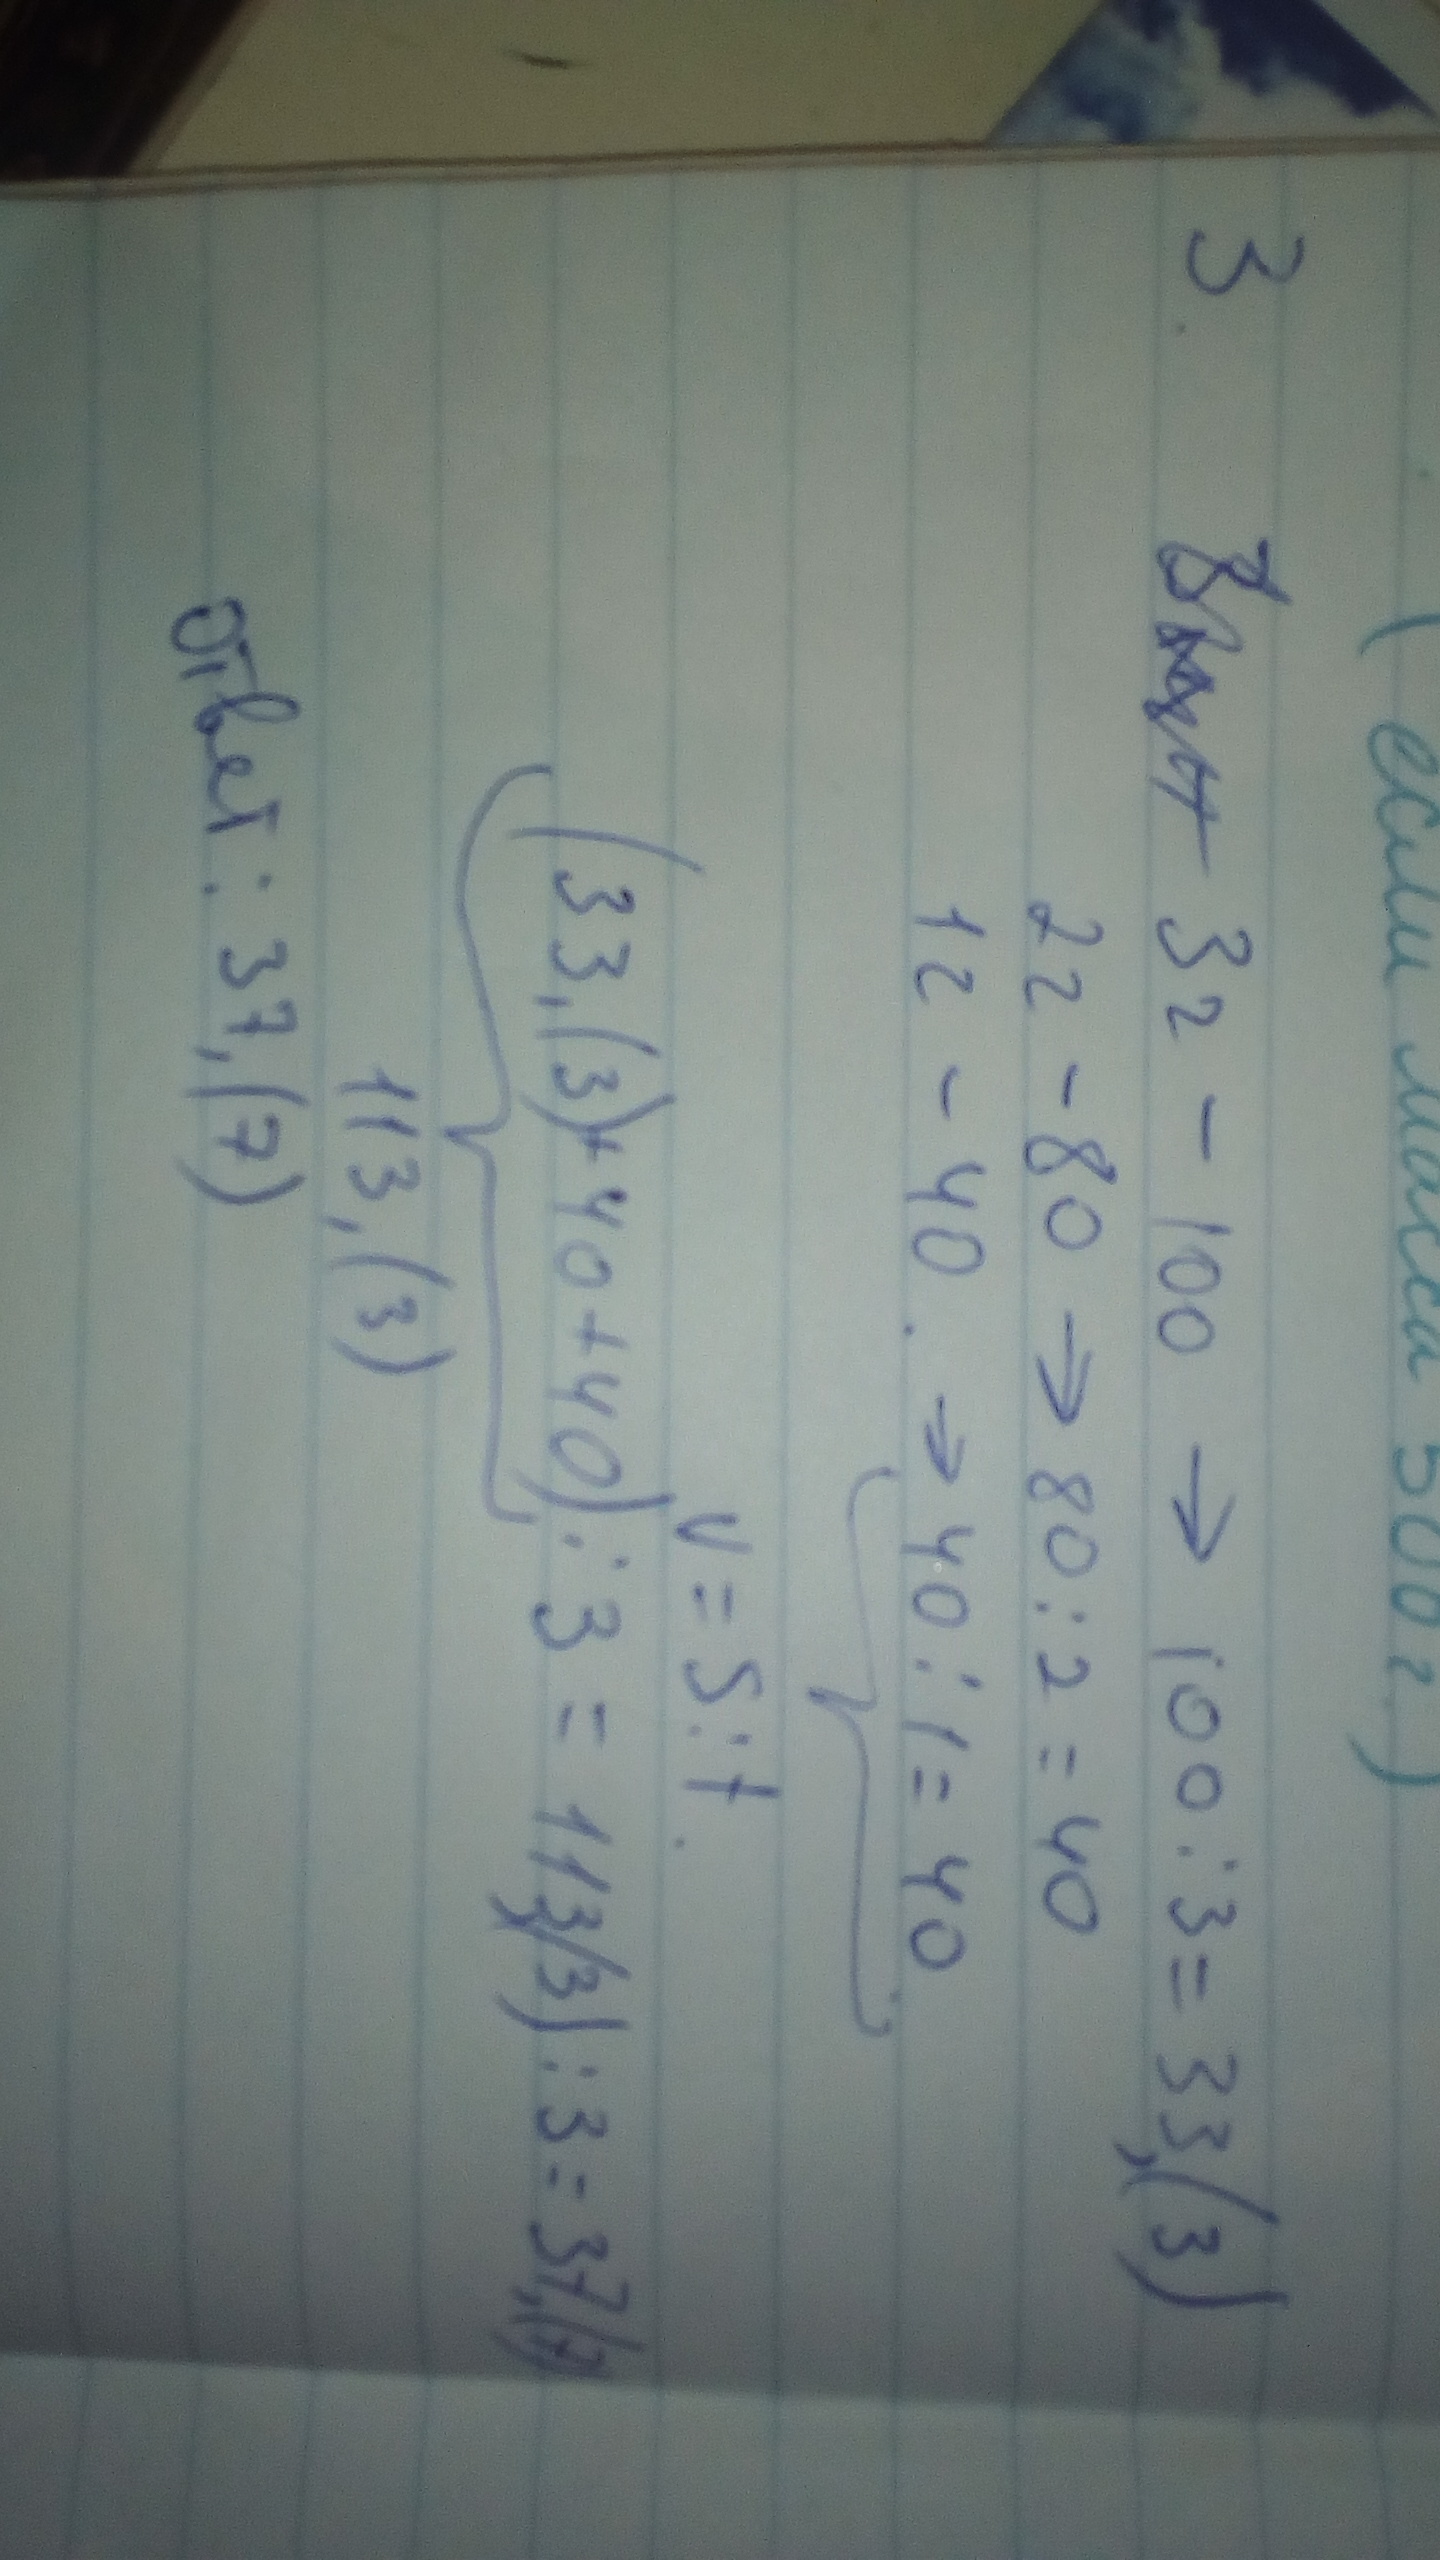 (если масса 500 г)
3. 3г - 100 → 100:3 = 33,(3)
2г - 80 → 80:2 = 40
1г - 40. → 40:1 = 40
v = S:t.
(33,(3)+40+40):3 = 113,(3):3 = 37,(7)
113,(3)
Ответ: 37,(7)